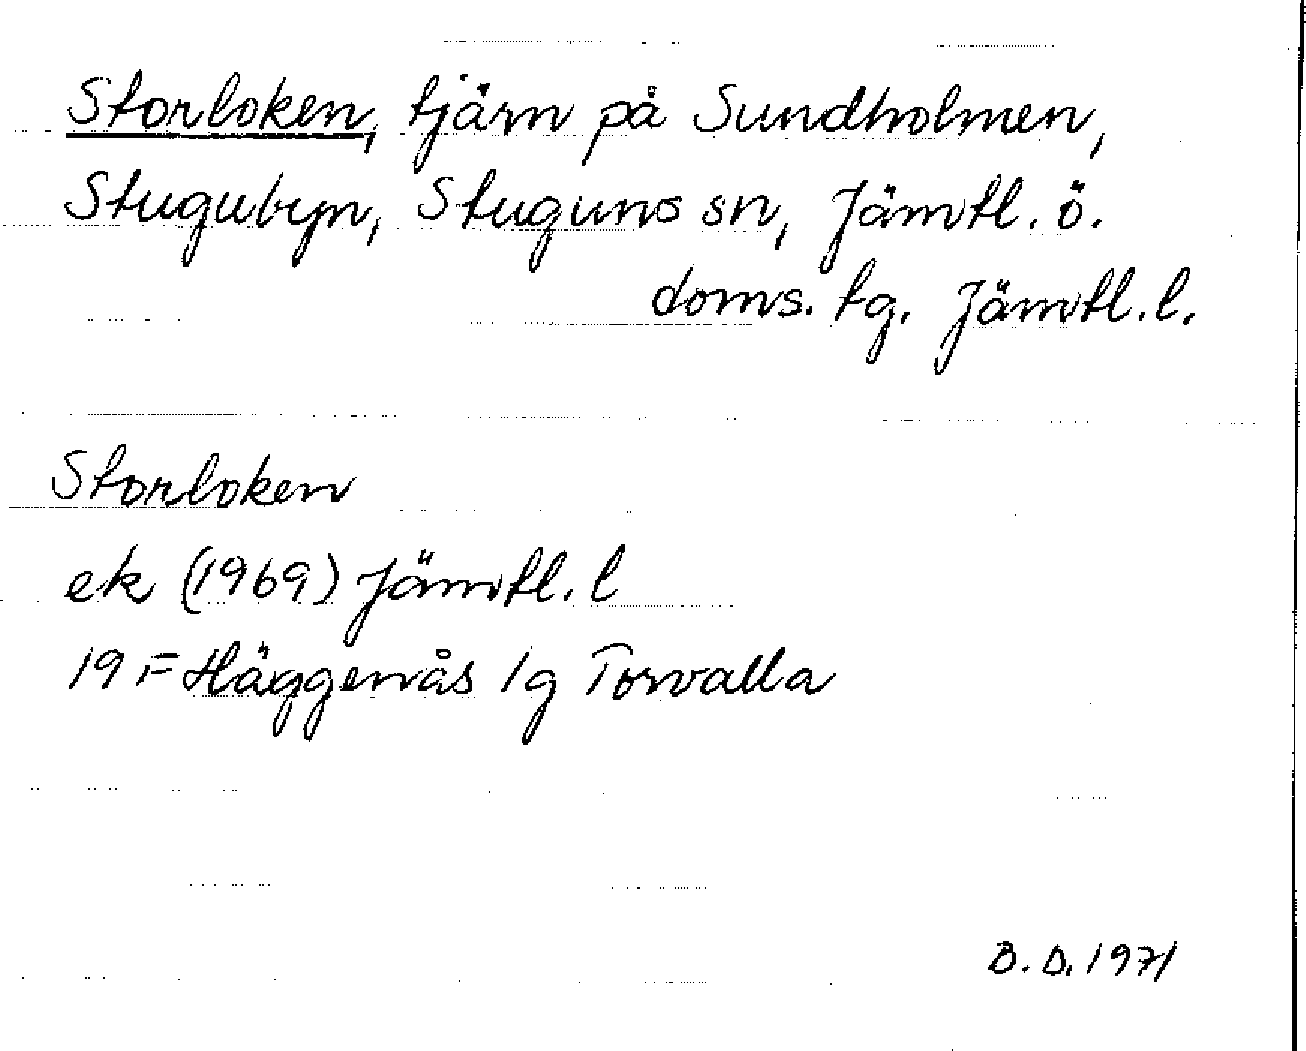 Storloken, tjärn på Sundholmen,
Stugubyn, Stuguns sn, Jämtl. ö.
doms. tg. Jämtl. l.
Storloken
ek (1969) Jämtl. l
19 F Häggenås 1g Torvalla
B. D. 1971